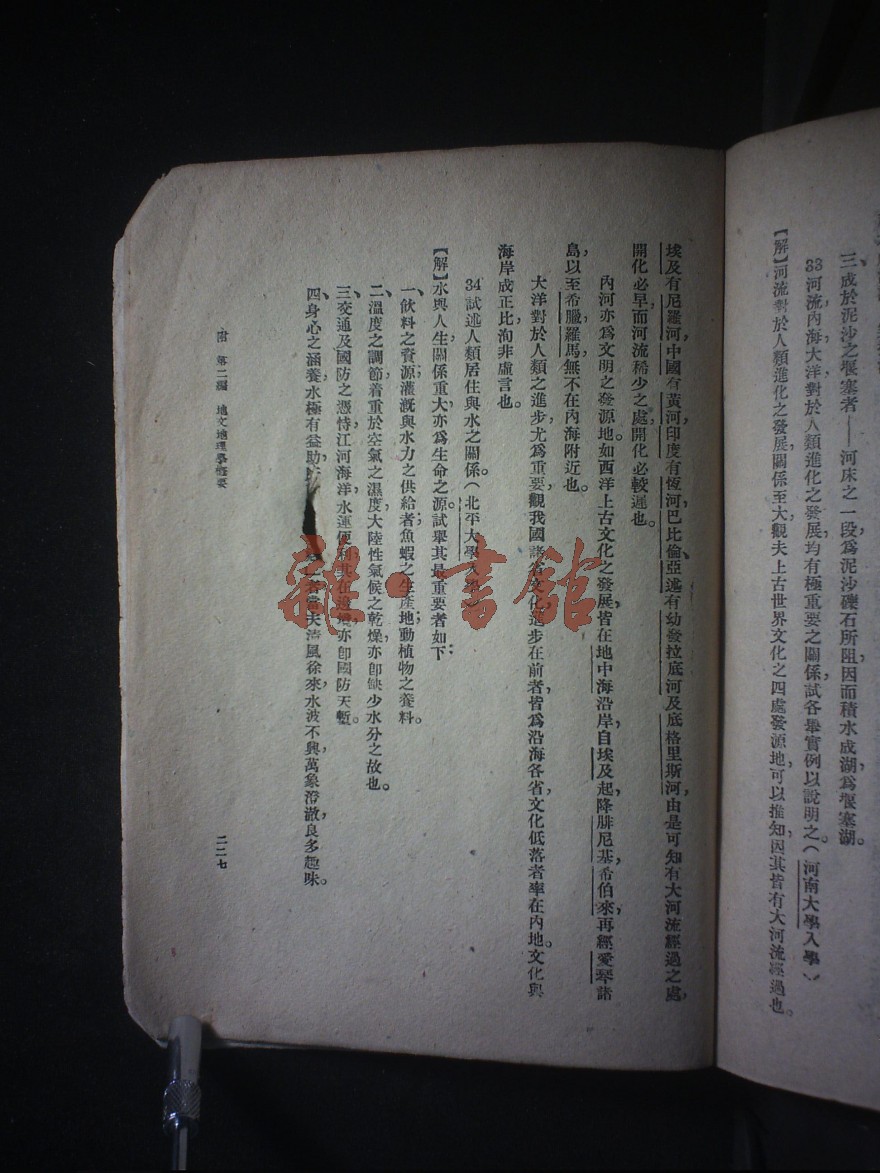 三、成於泥沙之堰塞者——河床之一段，爲泥沙礫石所阻，因而積水成湖，爲堰塞湖。
33 河流、內海、大洋對於人類進化之發展，均有極重要之關係，試各舉實例以說明之。（河南大學入學）
【解】河流對於人類進化之發展，關係至大，觀夫上古世界文化之四處發源地，可以推知，因其皆有大河流經過也。
埃及有尼羅河，中國有黃河，印度有恆河，巴比倫、亞述有幼發拉底河及底格里斯河，由是可知有大河流經過之處，
開化必早，而河流稀少之處，開化必較遲也。
內河亦爲文明之發源地。如西洋上古文化之發展，皆在地中海沿岸，自埃及起，降腓尼基，希伯來，再經愛琴諸
島，以至希臘羅馬，無不在內海附近也。
大洋對於人類之進步，尤爲重要，觀我國諸省文化，進步在前者，皆爲沿海各省，文化低落者，率在內地。文化與
海岸成正比，洵非虛言也。
34 試述人類居住與水之關係。（北平大學入學）
【解】水與人生關係重大，亦爲生命之源。試舉其最重要者如下：
一、飲料之資源；灌漑與水力之供給者；魚蝦之生產地；動植物之養料。
二、溫度之調節，着重於空氣之濕度，大陸性氣候之乾燥，亦卽缺少水分之故也。
三、交通及國防之憑恃，江河海洋，水運便利，其在邊境，亦卽國防天塹。
四、身心之涵養，水極有益助，者，當夫清風徐來，水波不興，萬象澄澈，良多趣味。
附 第二編 地文地理學概要
二二七
龍書館